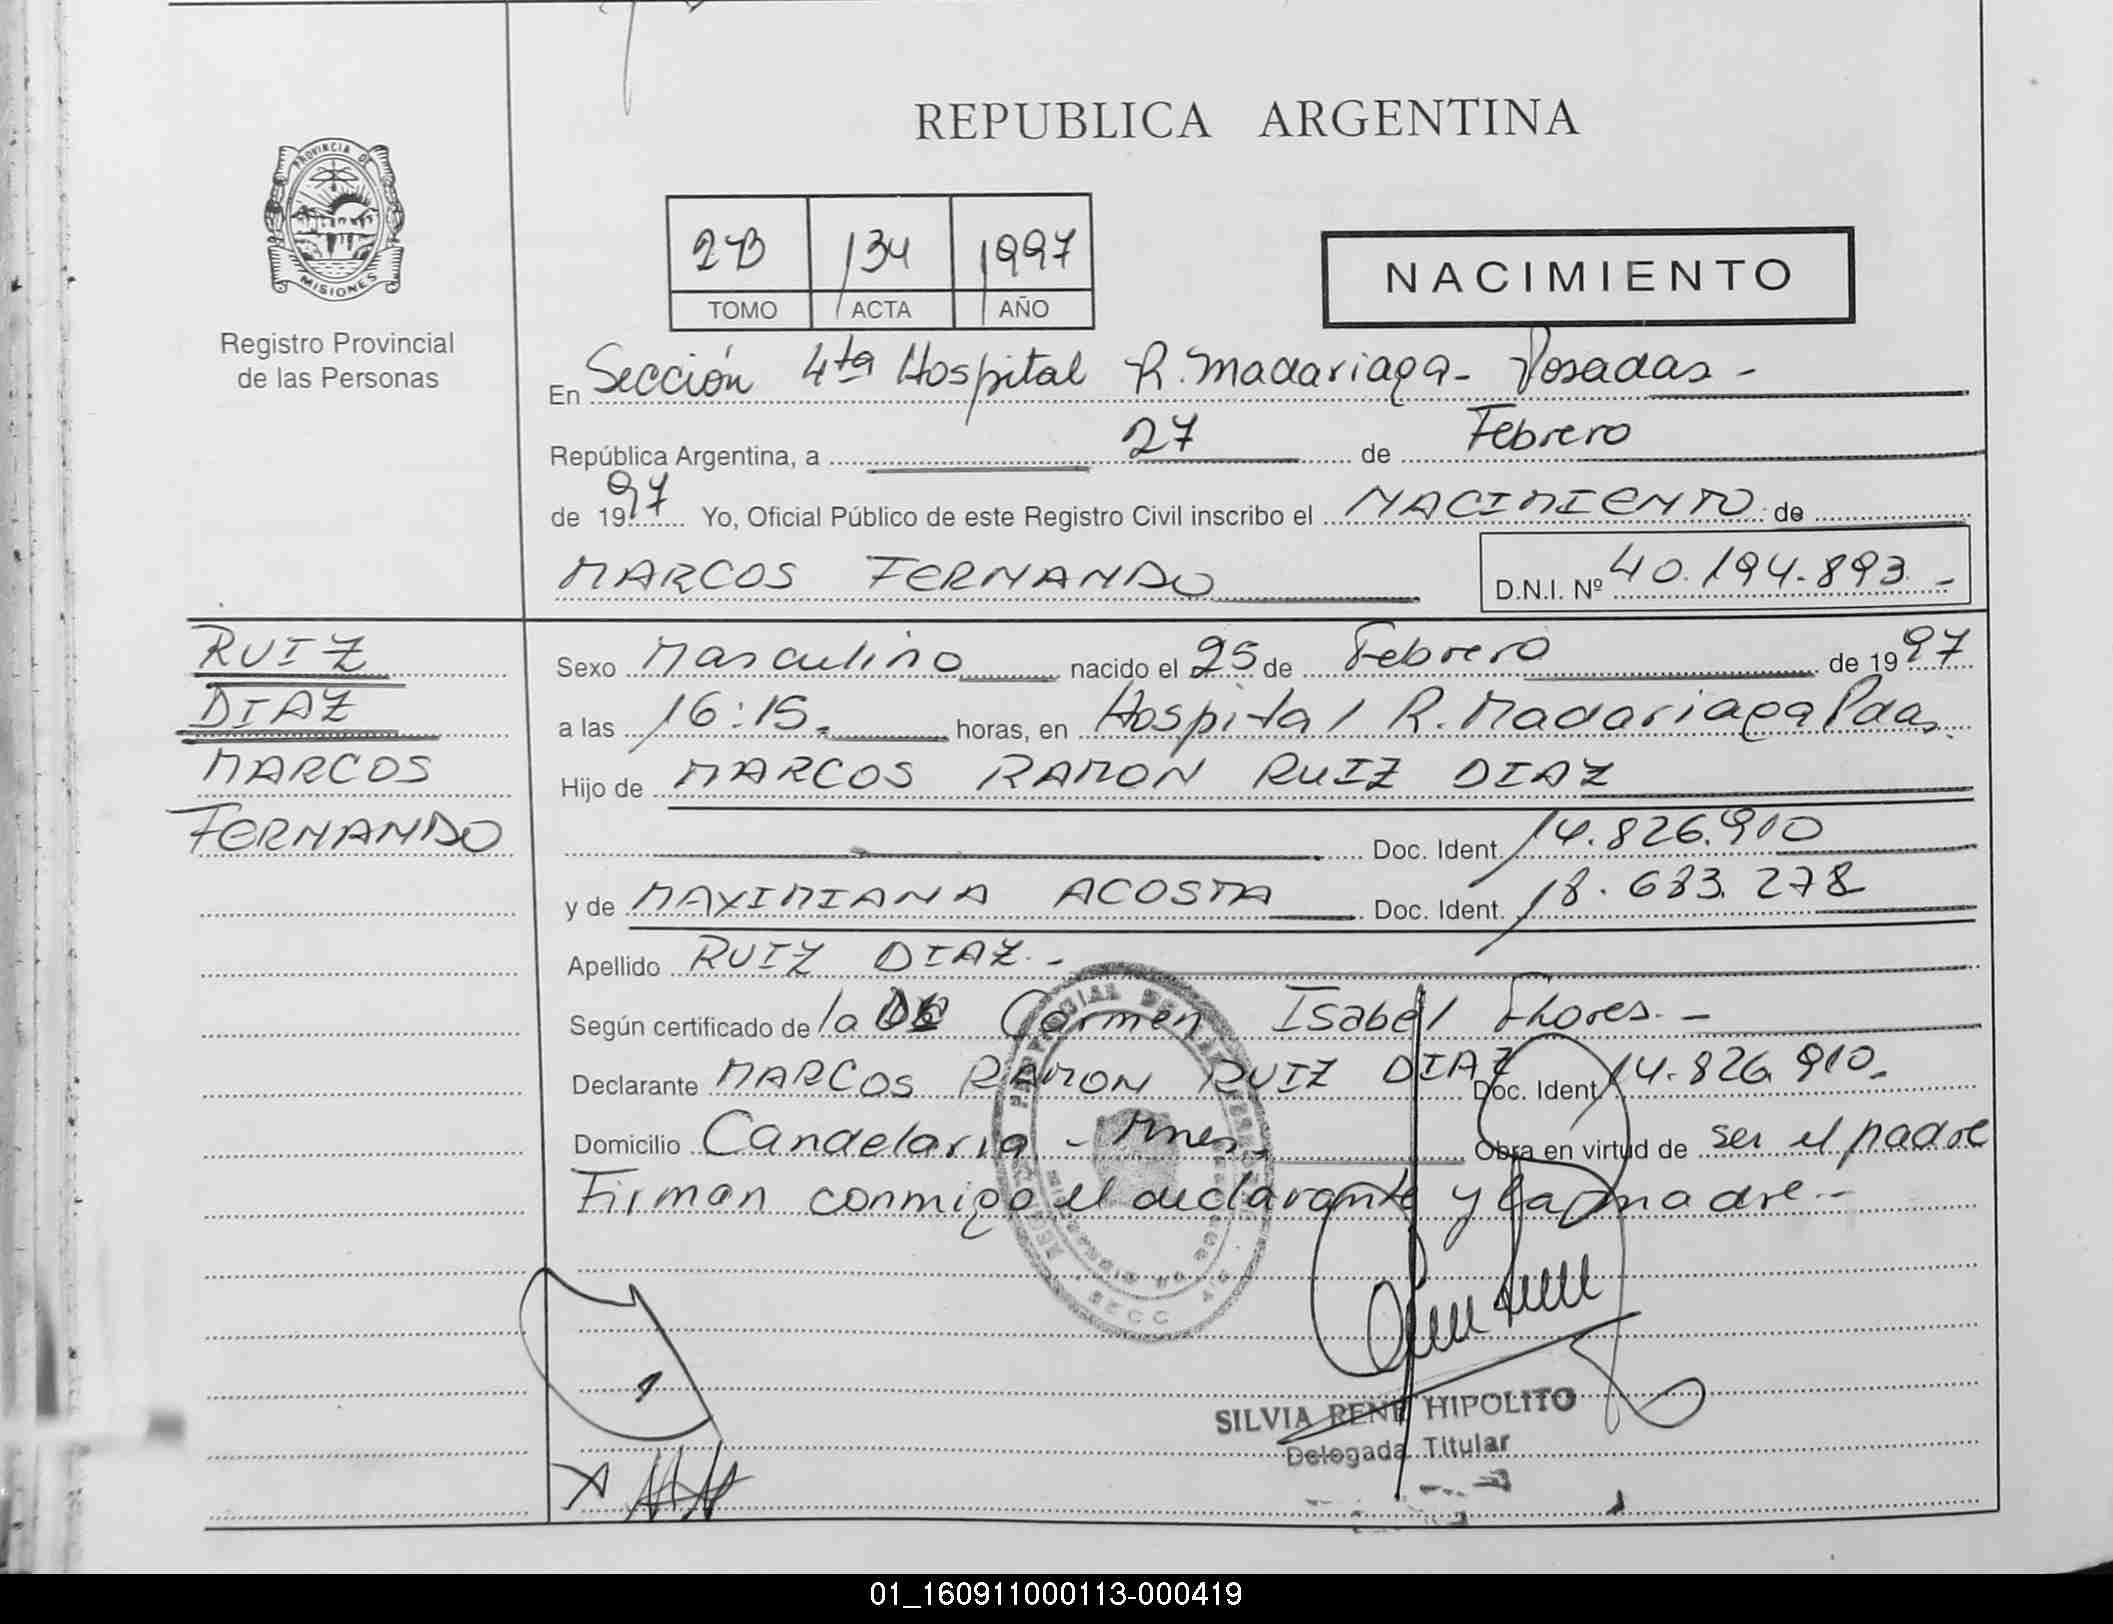 REPUBLICA ARGENTINA
PROVINCIA DE
MISIONES
Registro Provincial
de las Personas
2B 134 1997
TOMO ACTA AÑO
NACIMIENTO
En Sección 4ta Hospital R. Madariaga - Posadas -
República Argentina, a 27 de Febrero
de 1997 Yo, Oficial Público de este Registro Civil inscribo el NACIMIENTO de
MARCOS FERNANDO D.N.I. Nº 40.194.893 -
RUIZ
DIAZ
MARCOS
FERNANDO
Sexo Masculino nacido el 25 de Febrero de 1997
a las 16:15 horas, en Hospital R. Madariaga Pdas.
Hijo de MARCOS RAMON RUIZ DIAZ
Doc. Ident. 14.826.910
y de MAXIMIANA ACOSTA Doc. Ident. 18.683.278
Apellido RUIZ DIAZ. -
Según certificado de la Carmen Isabel Flores. -
Declarante MARCOS RAMON RUIZ DIAZ Doc. Ident. 14.826.910.
Domicilio Candelaria - Mnes. Obra en virtud de ser el padre
Firman conmigo el declarante y la madre. -
SILVIA RENE HIPOLITO
Delegada Titular
01_160911000113-000419